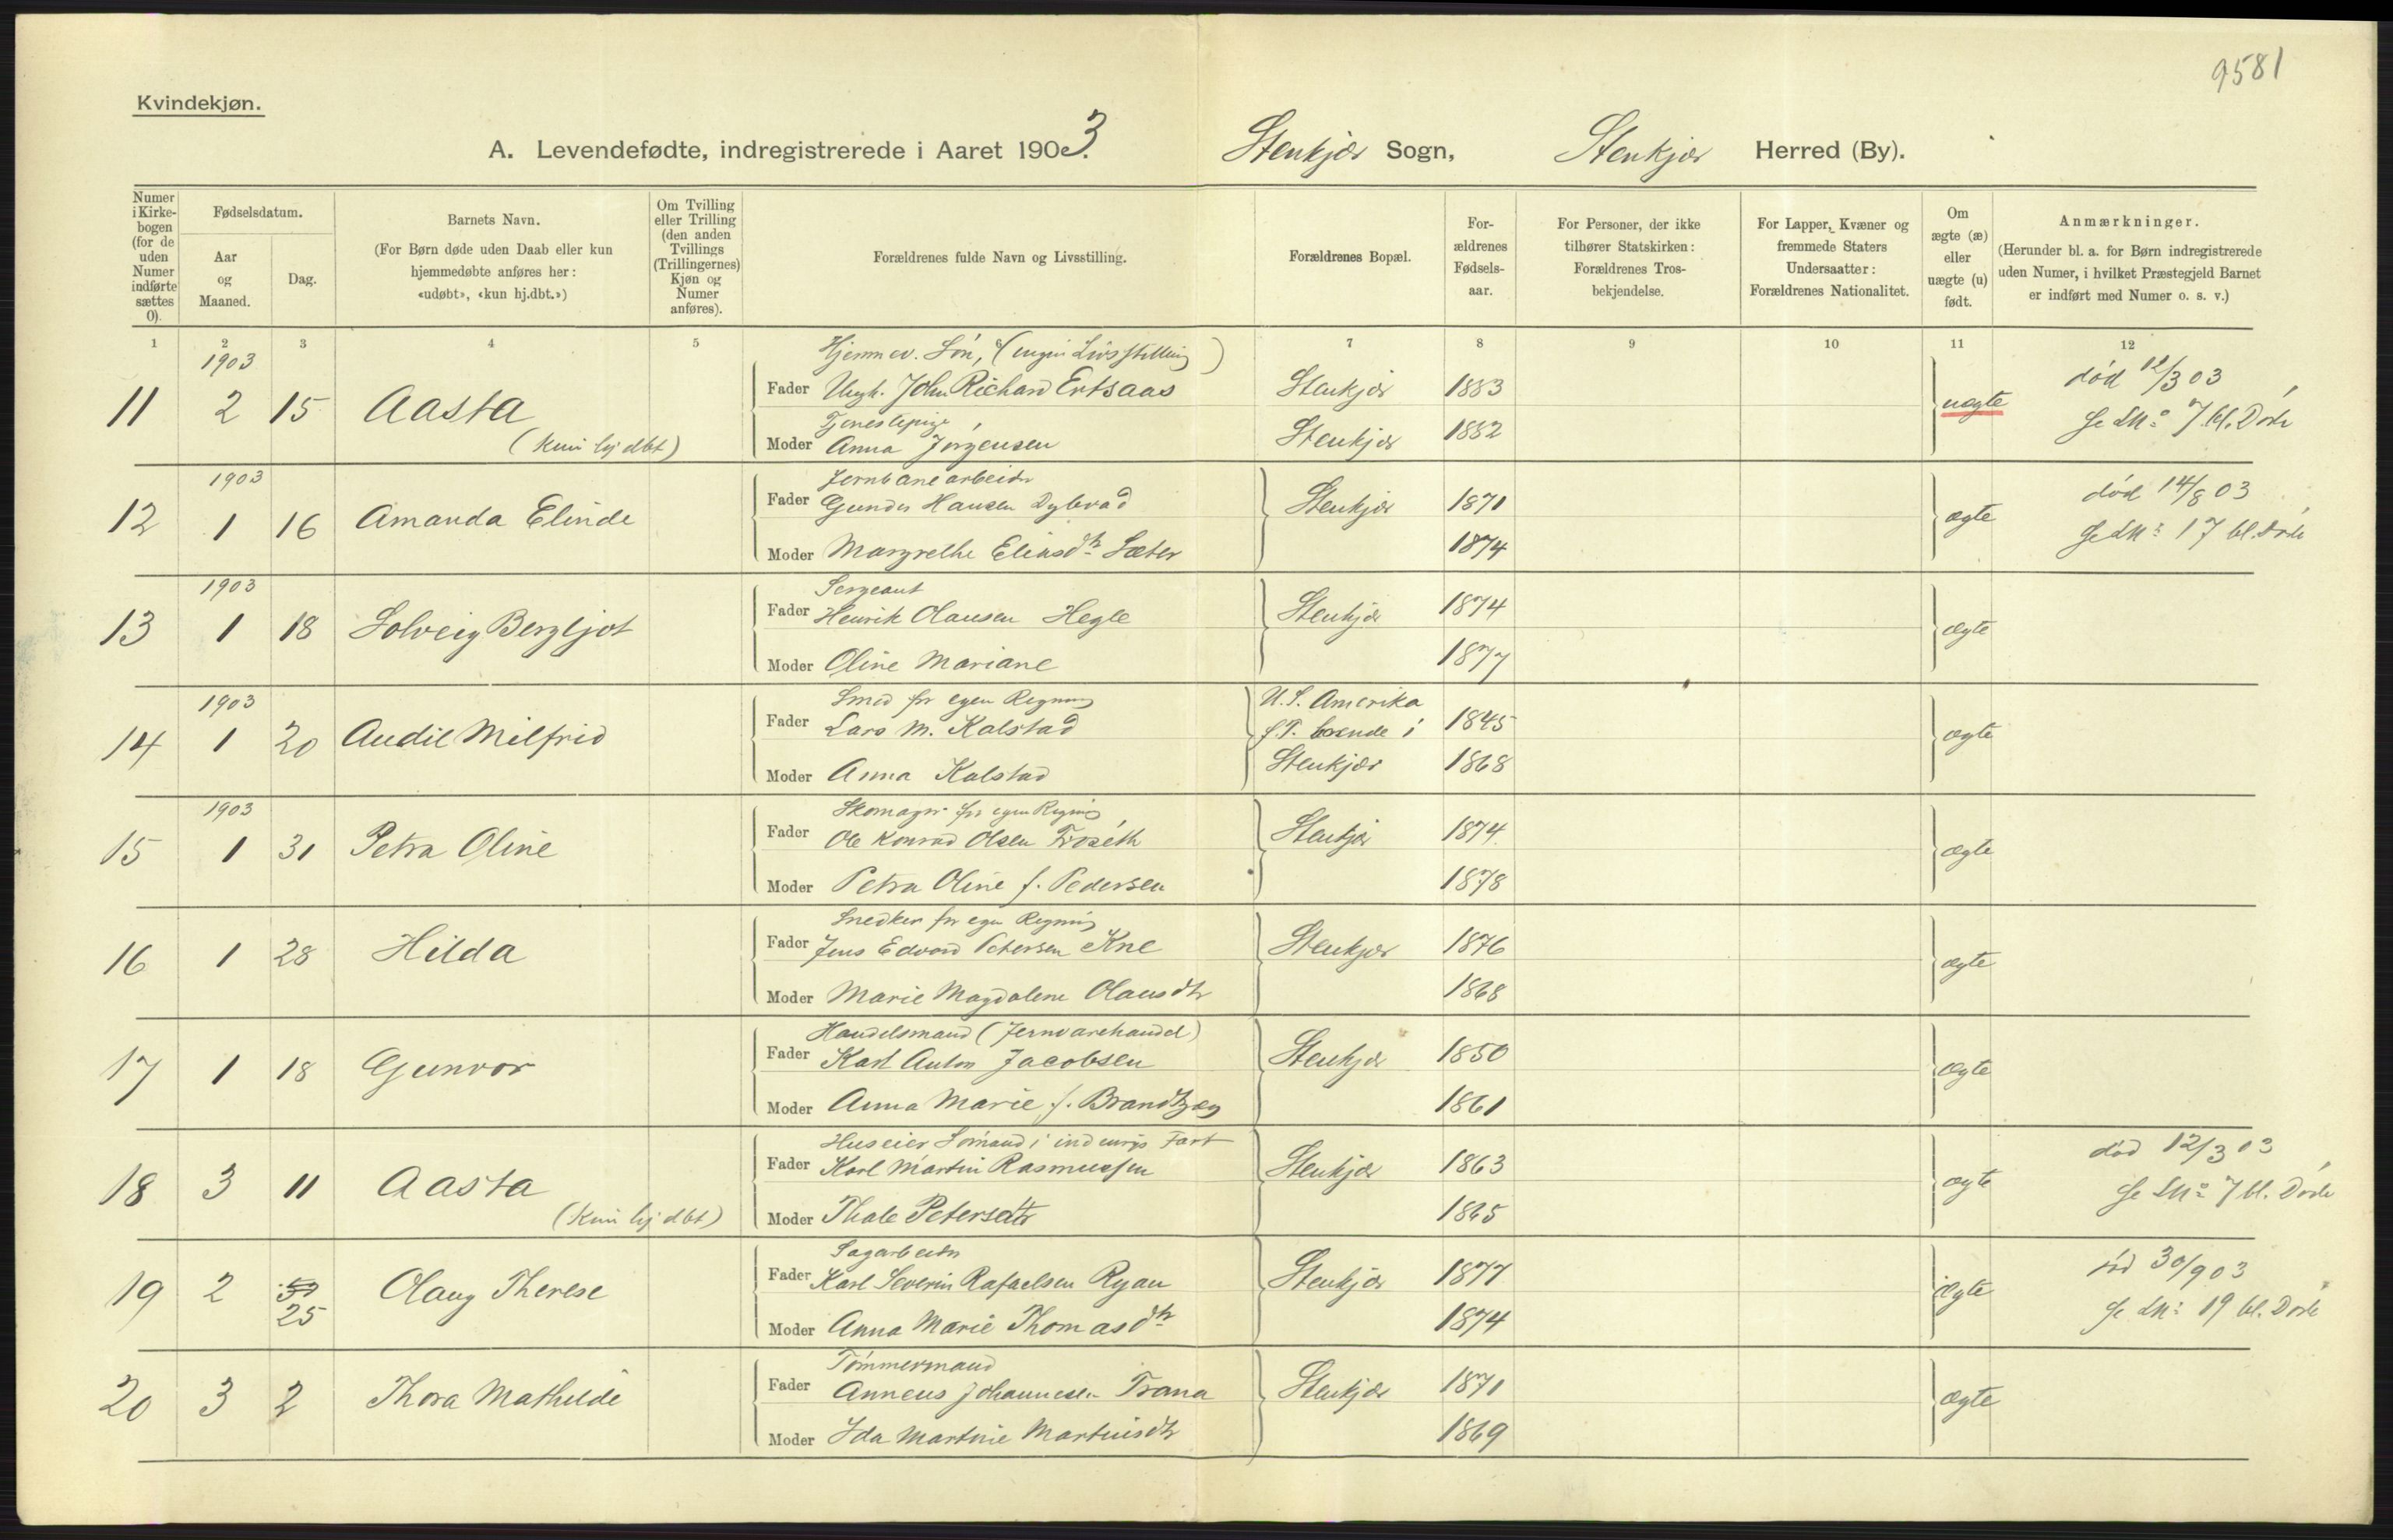 9581
Kvindekjøn.
A. Levendefødte, indregistrerede i Aaret 1903. Stenkjær Sogn, Stenkjær Herred (By).
Numer i Kirkebogen (for de uden Numer indførte sættes 0).
Fødselsdatum.
Aar og Maaned.
Dag.
Barnets Navn.
(For Børn døde uden Daab eller kun
hjemmedøbte anføres her:
«udøbt», «kun hj.dbt.»)
Om Tvilling
eller Trilling
(den anden
Tvillings
(Trillingernes)
Kjøn og
Numer
anføres).
Forældrenes fulde Navn og Livsstilling.
Forældrenes Bopæl.
For-
ældrenes
Fødsels-
aar.
For Personer, der ikke
tilhører Statskirken:
Forældrenes Tros-
bekjendelse.
For Lapper, Kvæner og
fremmede Staters
Undersaatter:
Forældrenes Nationalitet.
Om
ægte (æ)
eller
uægte (u)
født.
Anmærkninger.
(Herunder bl. a. for Børn indregistrerede
uden Numer, i hvilket Præstegjeld Barnet
er indført med Numer o. s. v.)
1 2 3 4 5 6 7 8 9 10 11 12
1903 Hjemmev. Søn, (ingen Livsstilling) død 12/3 03
11 2 15 Aasta Fader Ungk. John Richard Ertsaas Stenkjær 1883 uægte
Tjenestepige Se LN: 7 bl. Døde
(Kun hj dbt) Moder Anna Jørgensen Stenkjær 1882
1903 Jernbanearbeider død 14/8 03
12 1 16 Amanda Elinde Fader Gunder Hansen Dybvad Stenkjær 1871 ægte
Moder Margrethe Eliasdtr Sæter 1874 Se LN: 17 bl. Døde
1903 Sergeant
13 1 18 Solveig Bergljot Fader Henrik Olausen Hegle Stenkjær 1874 ægte
Moder Oline Mariane 1877
1903 Smed for egen Regning U.S. Amerika
14 1 20 Audil Milfrid Fader Lars M. Kalstad f.T. boende i 1845 ægte
Moder Anna Kalstad Stenkjær 1868
1903 Skomager for egen Regning
15 1 31 Petra Oline Fader Ole Konrad Olsen Troseth Stenkjær 1874 ægte
Moder Petra Oline f. Pedersen 1878
Snedker for egen Regning
16 1 28 Hilda Fader Jens Edvard Petersen Kne Stenkjær 1876 ægte
Moder Marie Magdalene Olausdtr 1868
Handelsmand (Jernvarehandel)
17 1 18 Gunvor Fader Karl Anton Jacobsen Stenkjær 1850 ægte
Moder Anna Marie f. Brandtzæg 1861
Huseier Sømand i indenrigs Fart død 12/3 03
18 3 11 Aasta Fader Karl Martin Rasmussen Stenkjær 1863 ægte
(Kun hj dbt) Moder Thale Petersdtr 1865 Se LN: 7 bl. Døde
Sagarbeider død 30/9 03
19 2 25 Olaug Therese Fader Karl Severin Rafaelsen Ryan Stenkjær 1877 ægte
Moder Anna Marie Thomasdtr 1874 Se LN: 19 bl. Døde
Tømmermand
20 3 2 Thora Mathilde Fader Anneus Johannesen Trana Stenkjær 1871 ægte
Moder Ida Martine Martinisdtr 1869